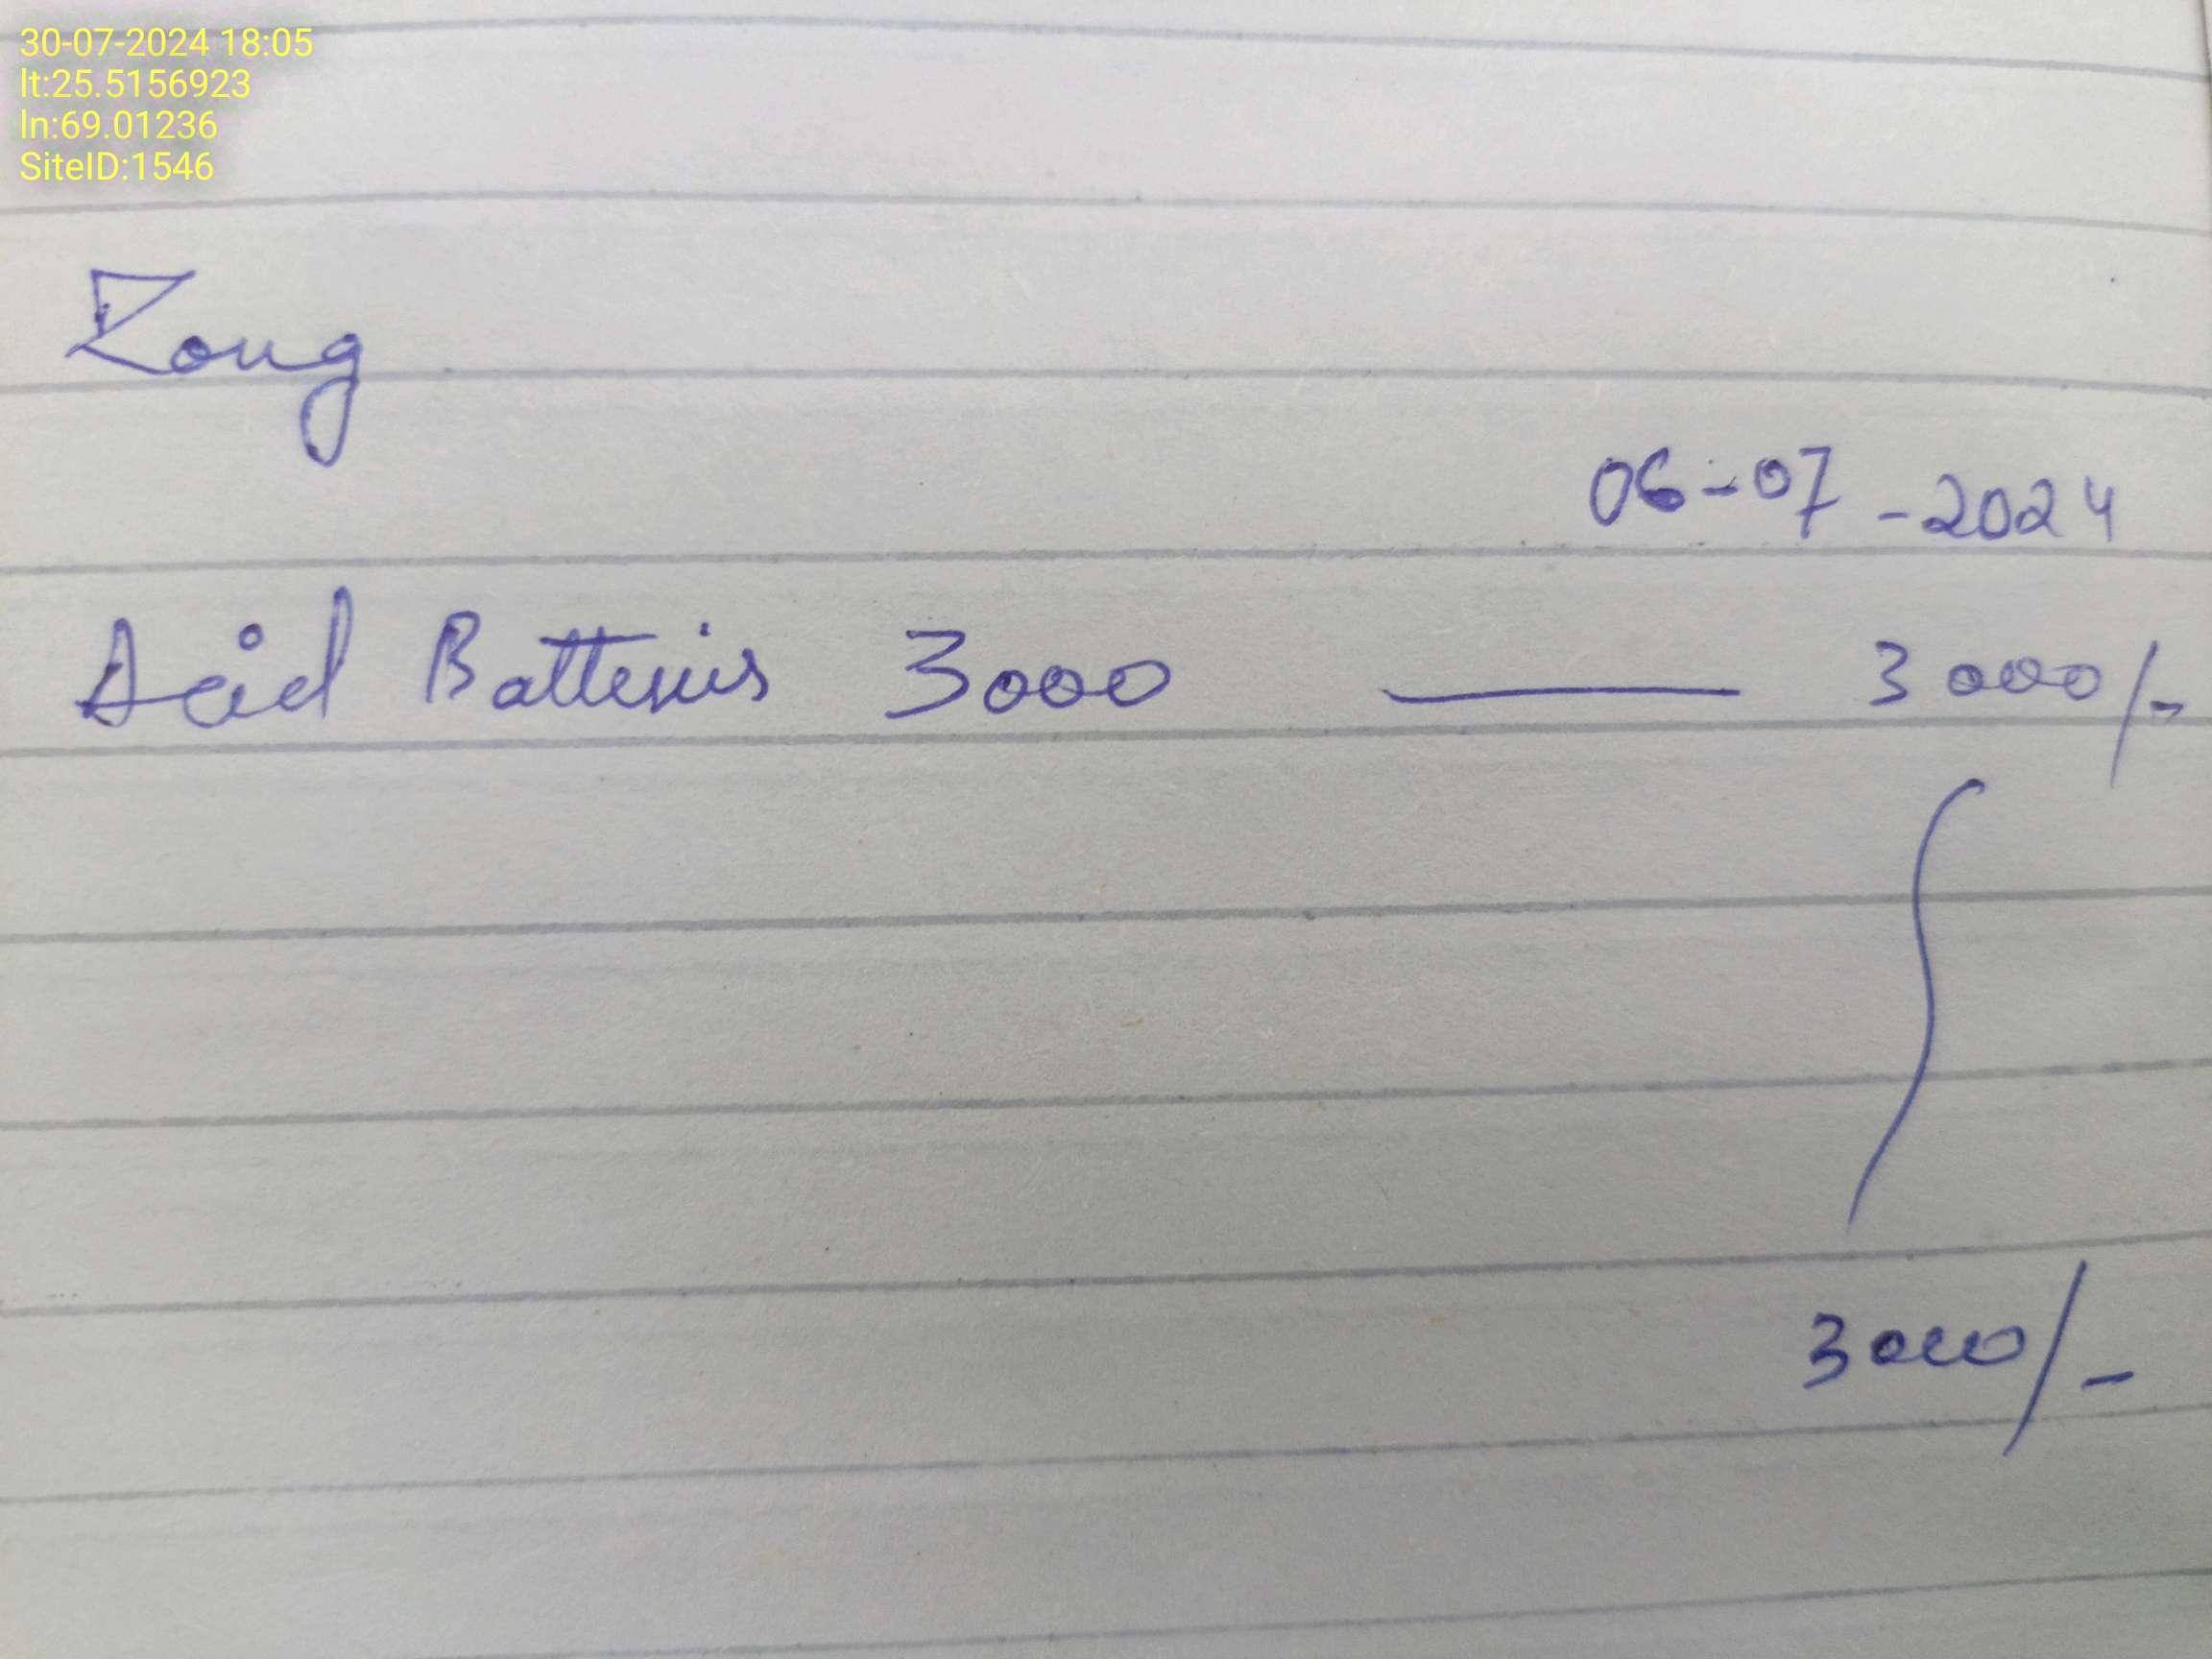 30-07-2024 18:05
lt:25.5156923
ln:69.01236
SiteID:1546
Zong
06-07-2024
Acid Batteris 3000 — 3000/-
3000/-